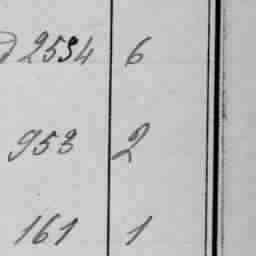 2534 6
953 2
161 1